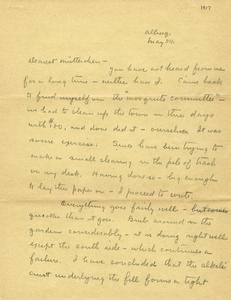 1917
Albuq.
May 24.
Dearest mutterchen -
You have not heard from me
for a long time - neither have I. Came back
to find myself on the "mosquito committee" -
we had to clean up the town in three days
with $100, and done did it - ourselves. It was
severe exercise. Since have been trying to
make a small clearing in the pile of trash
on my desk. Having done so - big enough
to lay this paper on - I proceed to write.
Everything goes fairly well - but comes
quicker than it goes. But around in the
garden considerably - it is doing right well
except the south side - which continues a
failure. I have concluded that the alkali
crust underlying the fill forms a tight